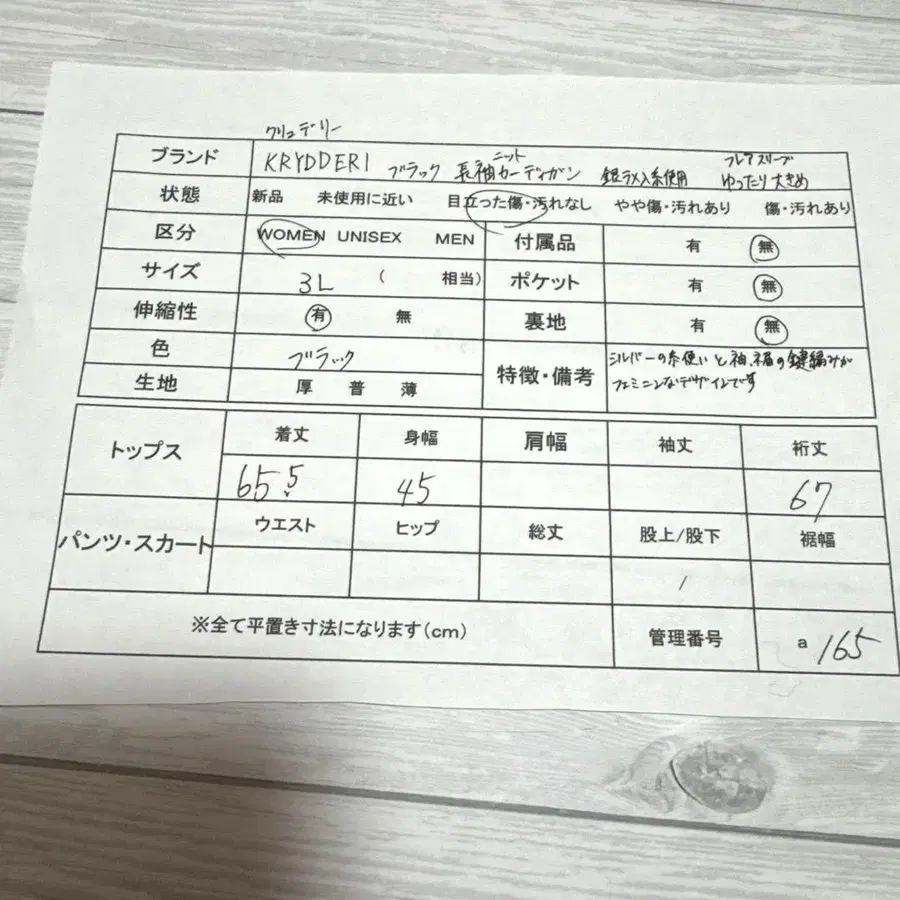 クリュデリー
ブランド KRYDDERI ブラック 長袖 ニット カーディガン 銀ラメ入糸使用 フレアスリーブ ゆったり大きめ
状態 新品 未使用に近い 目立った傷・汚れなし やや傷・汚れあり 傷・汚れあり
区分 WOMEN UNISEX MEN 付属品 有 無
サイズ 3L ( 相当) ポケット 有 無
伸縮性 有 無 裏地 有 無
色 ブラック 特徴・備考 シルバーの糸使いと袖、裾の鍵編みが
フェミニンなデザインです
生地 厚 普 薄
トップス 着丈 身幅 肩幅 袖丈 裄丈
65.5 45 67
パンツ・スカート ウエスト ヒップ 総丈 股上/股下 裾幅
/
※全て平置き寸法になります(cm) 管理番号 a 165